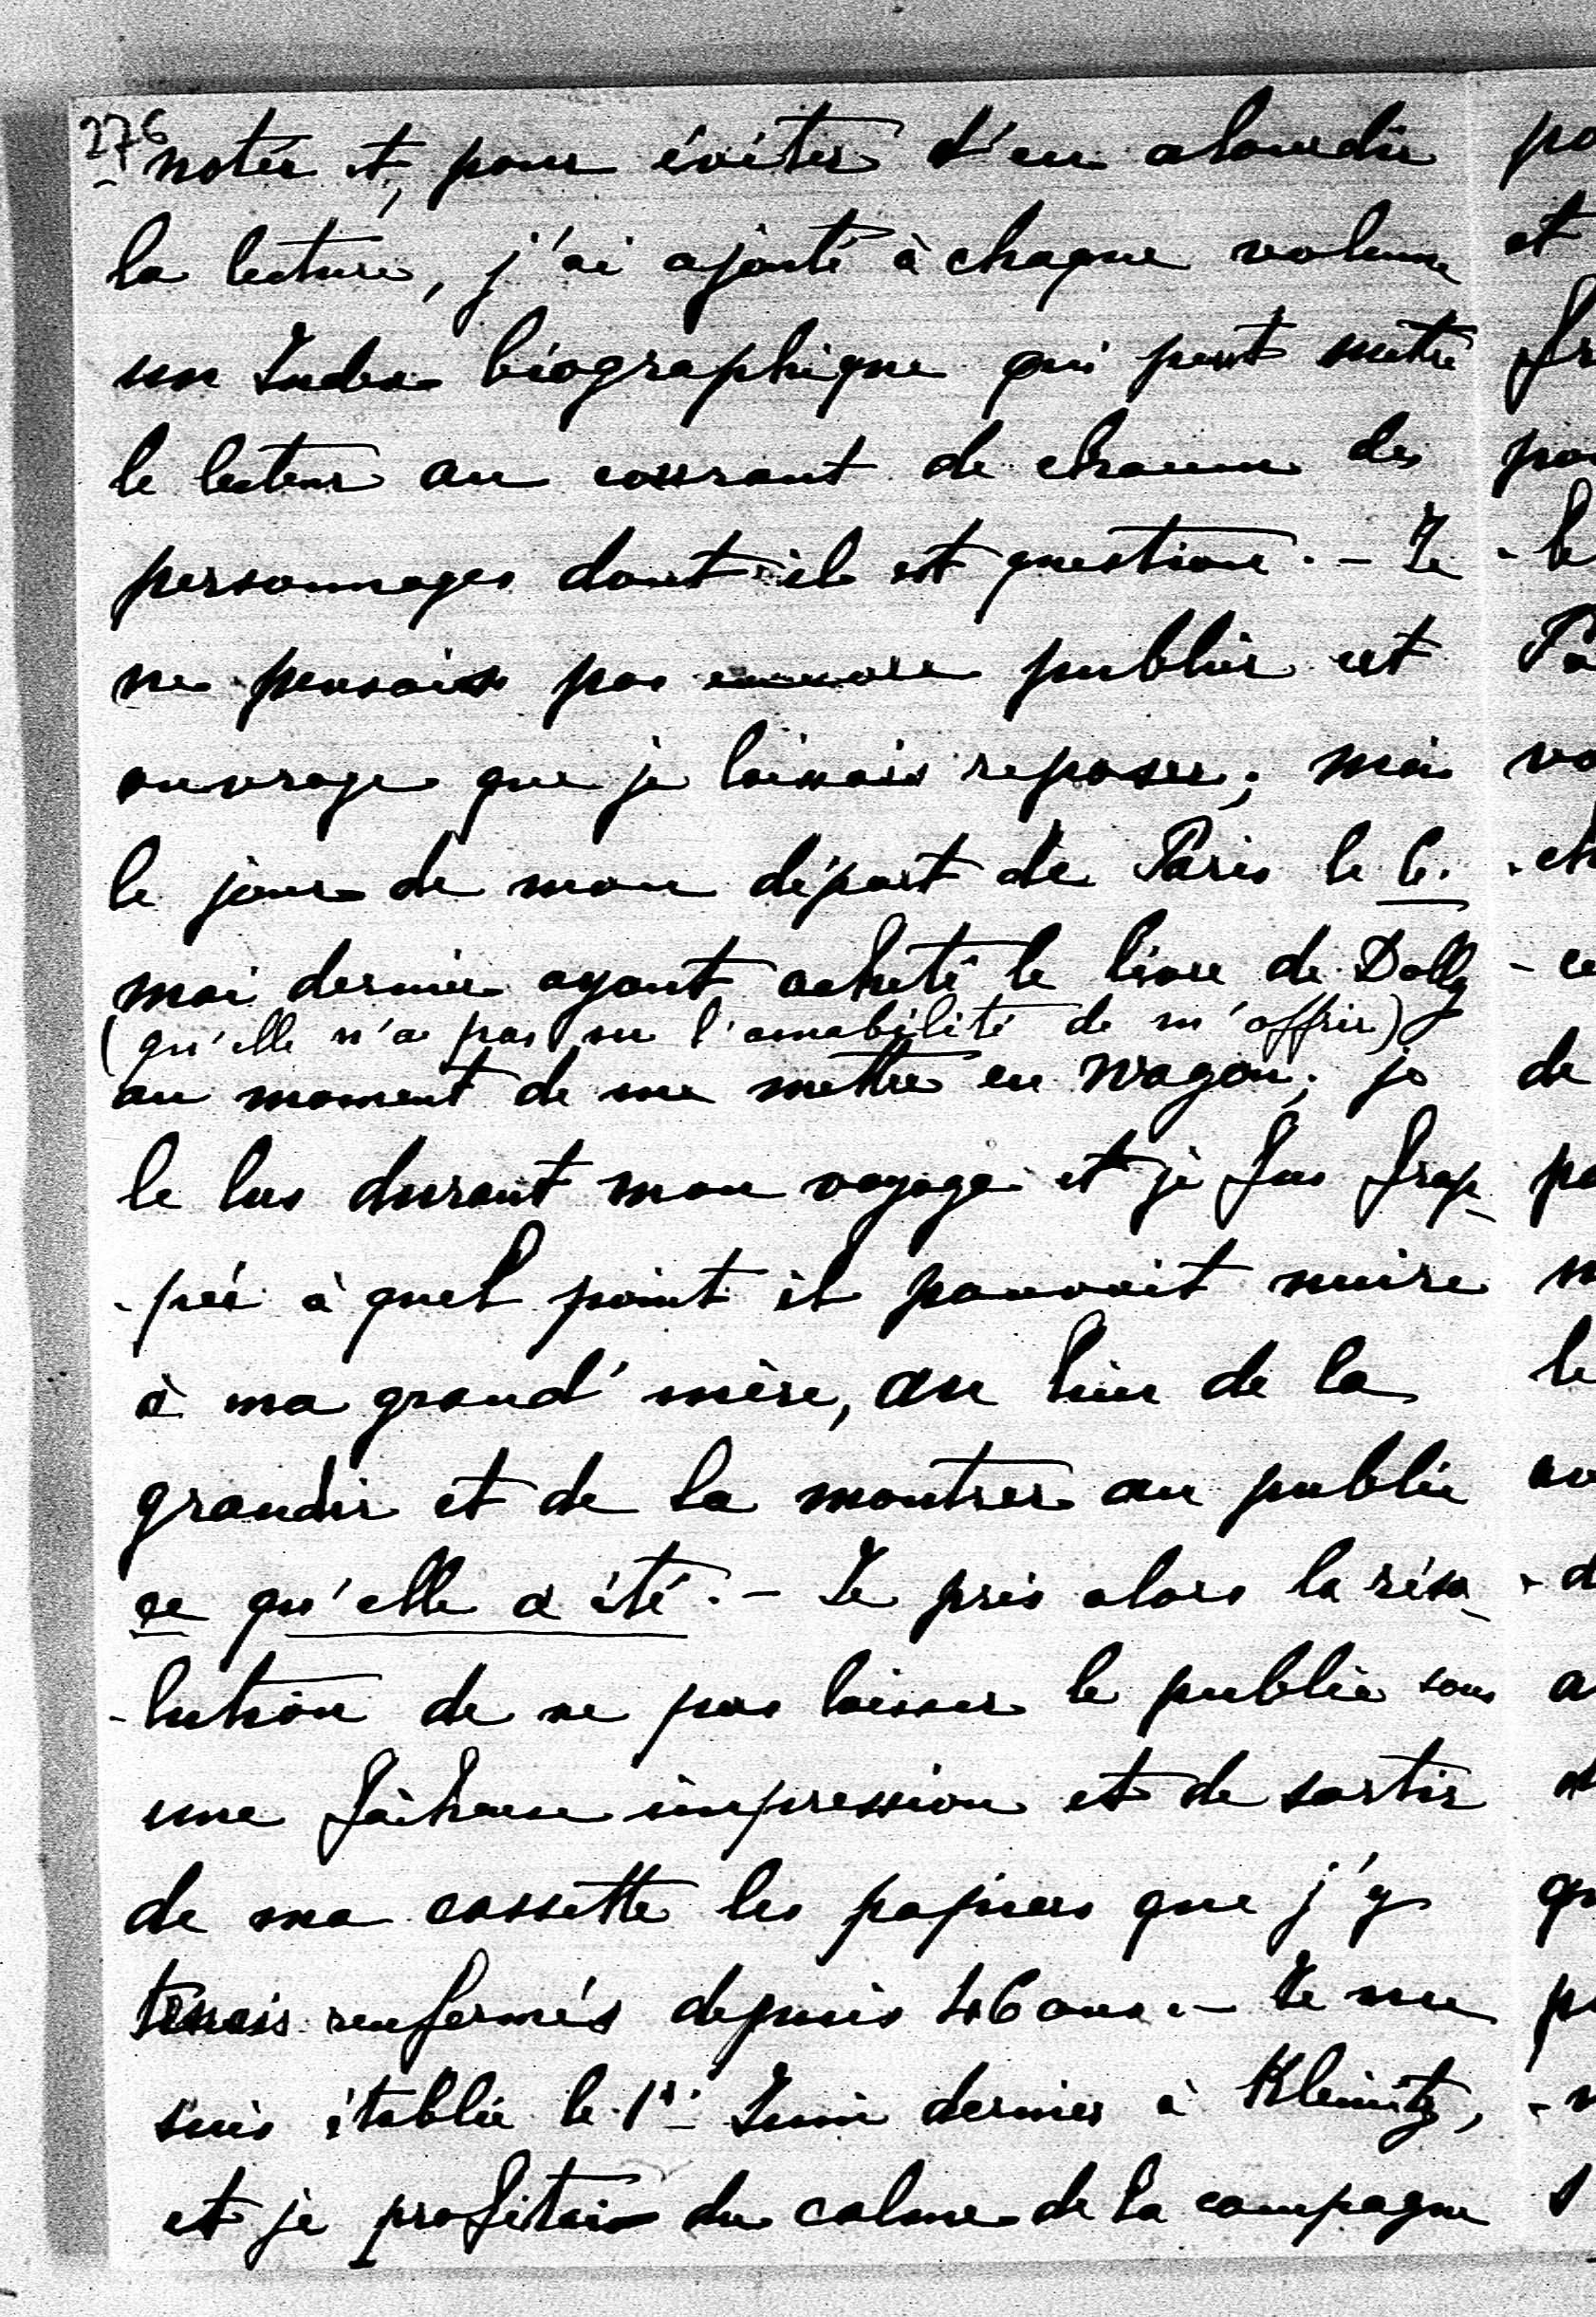 276
noter et, pour éviter d'en alourdir
la lecture, j'ai ajouté à chaque volume
un Index biographique qui peut mettre
le lecteur au courant de chacun des
personnages dont il est question. - Je
ne pensais pas encore publier cet
ouvrage que je laissais reposer; mais
le jour de mon départ de Paris le 6.
mai dernier ayant acheté le livre de Dolly
(qu'elle n'a pas eu l'amabilité de m'offrir)
au moment de me mettre en wagon, je
le lus durant mon voyage et je fus frap-
-pée à quel point il pouvait nuire
à ma grand'mère, au lieu de la
grandir et de la montrer au public
ce qu'elle a été. - Je pris alors la réso-
-lution de ne pas laisser le public sous
une fâcheuse impression et de sortir
de ma cassette les papiers que j'y
tenais renfermés depuis 46 ans. - Je me
suis établie le 1er Juin dernier à Kleinitz,
et je profitais du calme de la campagne